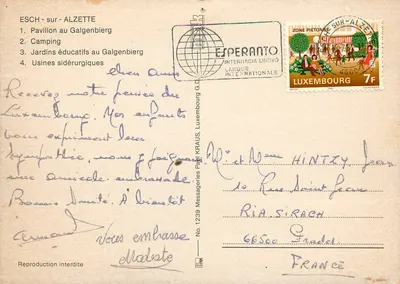 ESCH - sur - ALZETTE
1. Pavillon au Galgenbierg
2. Camping
3. Jardins éducatifs au Galgenbierg
4. Usines sidérurgiques
ESPERANTO
INTERNACIA LINGVO
LANGUE
INTERNATIONALE
SUR-ALZETTE
ZONE PIETONNE
LUXEMBOURG 7F
chers amis
Recevez notre pensée du
Luxembourg. Nos enfants
vous expriment leur
sympathie, nous y joignons
une amicale embrassade
Bonne Santé. A bientôt
Armand
Vous embrasse
Modeste
Mr et Mme HINTZY Jean
10 Rue Saint Jean
RIA. SIRACH
66500 Prades
FRANCE
No. 1239 Messageries Paul KRAUS, Luxembourg G.D.
Reproduction interdite